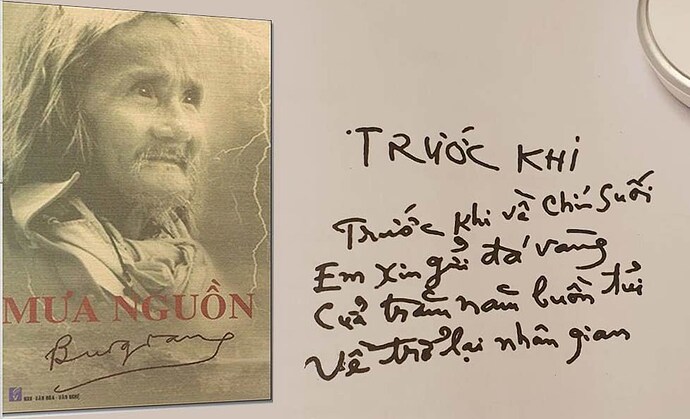 MƯA NGUỒN
Bùi Giáng
NXB VĂN HÓA - VĂN NGHỆ
TRƯỚC KHI
Trước khi về chín suối
Em xin gửi đá vàng
Của trăm năm buồn tủi
Về trở lại nhân gian